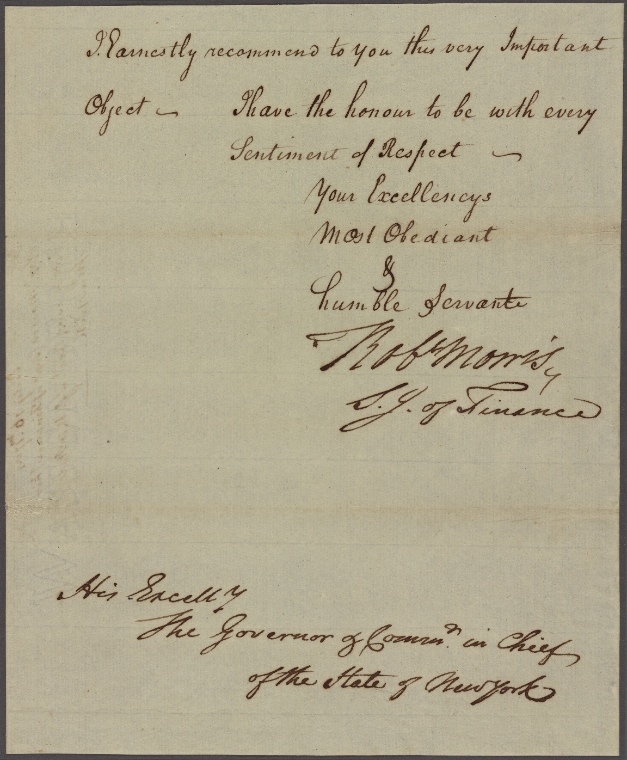 I Earnestly recommend to you this very Important
Object — I have the honour to be with every
Sentiment of Respect —
Your Excellencys
Most Obediant
&
humble Servante
Robt Morris,
S. J. of Finance
His Excelly
The Governor & Commr. in Chief
of the State of New York